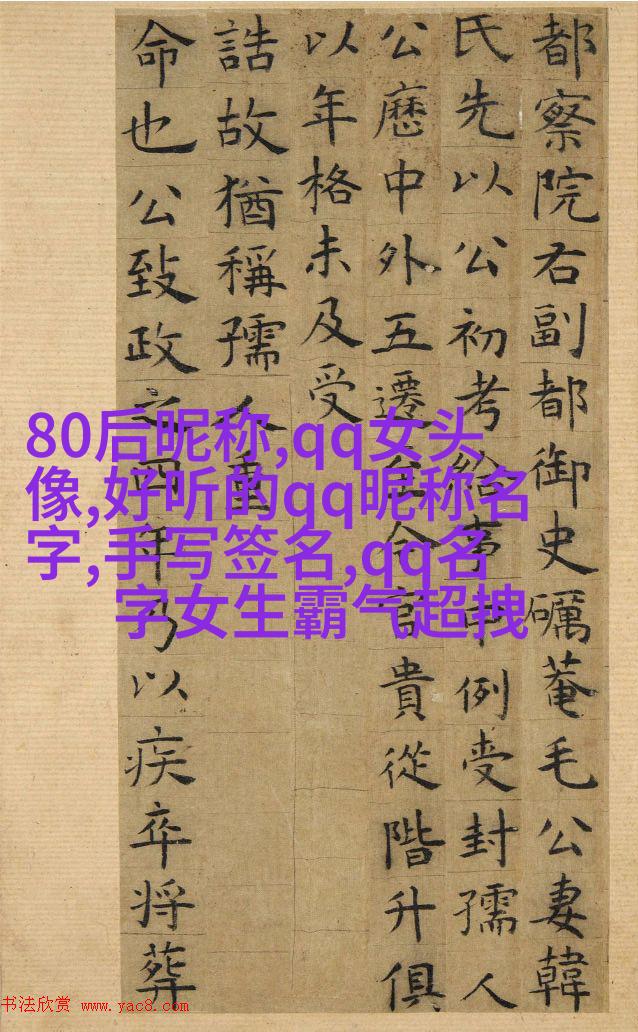 都察院右副都御史礪菴毛公妻韓
氏先以公初考給事中例受封孺人
公歷中外五遷至今官貴從階升俱
以年格未及受
誥故猶稱孺人重
命也公致政之四年乃以疾卒将葬
80后昵称,qq女头
像,好听的qq昵称名
字,手写签名,qq名
字女生霸气超拽
书法欣赏 www.yac8.com